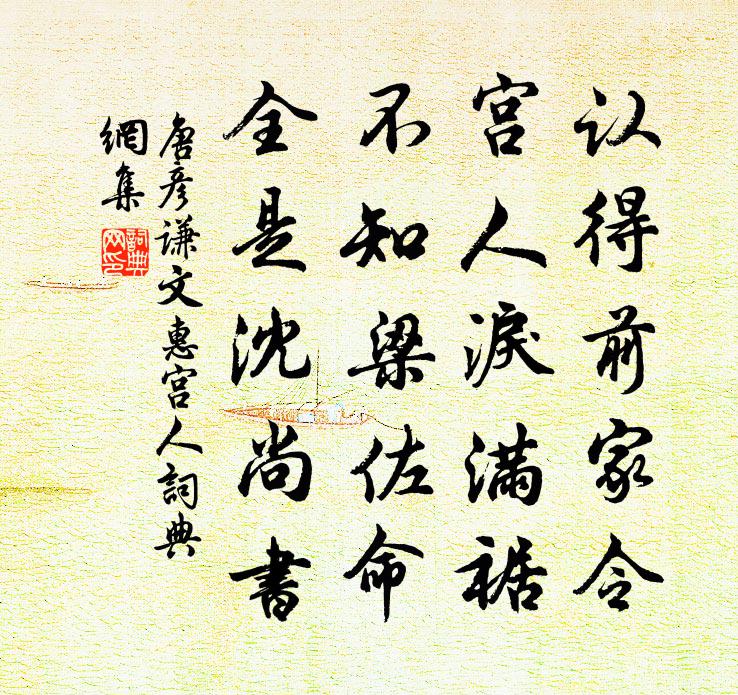 认得前家令
宫人淚満裾
不知梁佐命
全是沈尚書
唐彦谦文惠宫人詞典
網集
詞典
网印